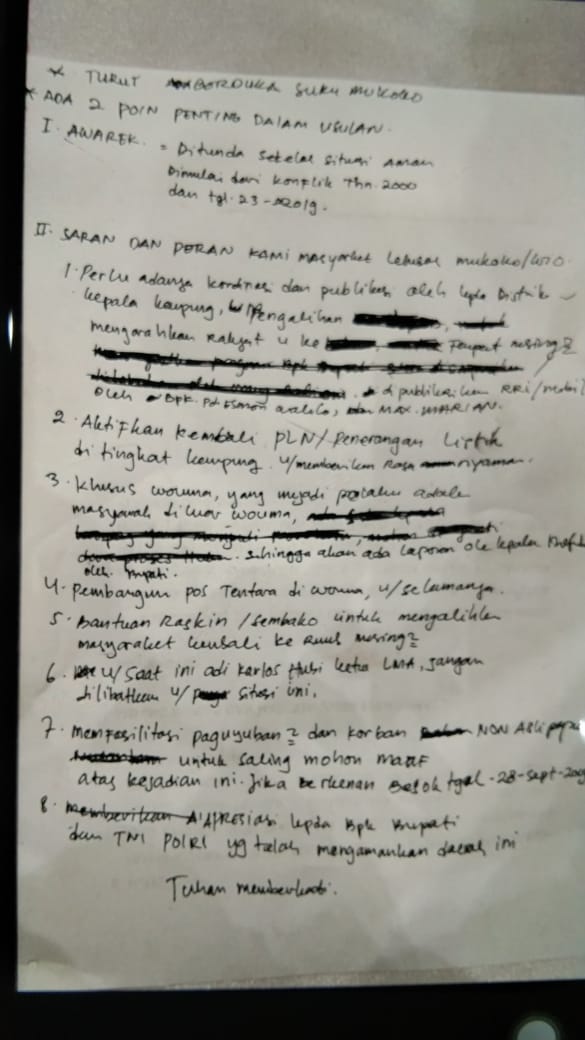 * TURUT BERDUKA SUKU MUKOKO
* ADA 2 POIN PENTING DALAM USULAN.
I. AWAREK. = Ditunda setelah situasi aman
Dimulai dari konflik Thn. 2000
dan tgl. 23 - 2019.
II. SARAN DAN PERAN KAMI masyarket Leluhur mukoko/
1. Perlu adanya kordinasi dan publikasi oleh kpda Distrik
kepala kampung, u/ Pengalihan
mengarahkan Rakyat u ke Tempat masing2
di publikasikan RRI/
oleh Bpk. MAX. MARIAN.
2. Aktifkan kembali PLN/Penerangan Listrik
di tingkat kampung. u/memberikan Rasa nyaman.
3. Khusus wouma, yang mjadi adale
masyarakat di luar wouma,
sehingga akan ada laporan ole kepala
oleh Bupati.
4. Pembangun pos Tentara di wouma, u/selamanya.
5. Bantuan Raskin / sembako untuk mengalihkn
masyaraket kembali ke masing2
6. u/ Saat ini adi karlos Hubi ketua LMA, jangan
dilibatkan u/ sitosi ini.
7. Memfasilitasi paguyuban2 dan korban NON ASLi
untuk saling mohon maaf
atas kejadian ini. Jika Berkenan Besok tgal - 28 - sept -
8. APRESIASi kpda Bpk Bupati
dan TNI POLRI yg telah mengamankan daerah ini
Tuhan memberkati.